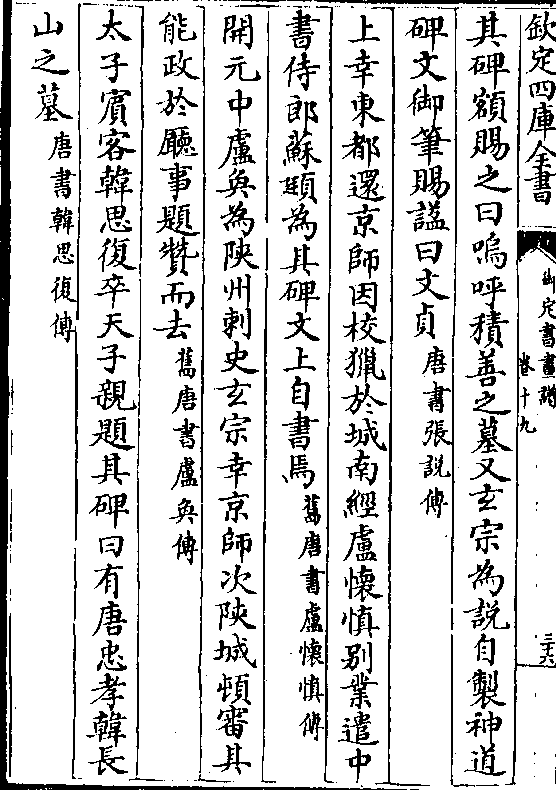 欽定四庫全書
御定書畫譜
卷十九
三十六
其碑額賜之曰嗚呼積善之墓又玄宗為說自製神道
碑文御筆賜諡曰文貞唐書張説傳
上幸東都還京師因校獵於城南經盧懷慎别業遣中
書侍郎蘇頲為其碑文上自書焉舊唐書盧懷慎傳
開元中盧奐為陜州刺史玄宗幸京師次陜城頓審其
能政於廳事題贊而去舊唐書盧奐傳
太子賓客韓思復卒天子親題其碑曰有唐忠孝韓長
山之墓唐書韓思復傳